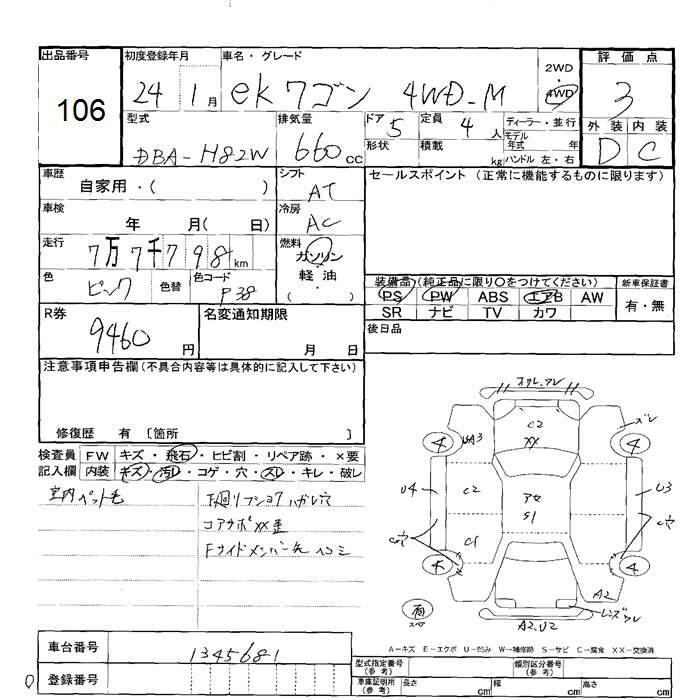 出品番号 初度登録年月 車名・グレード 2WD 4WD 評価点
106 24 1月 ek ワゴン 4WD-M 3
外装 内装
D C
型式 排気量 ドア 5 定員 4人 ディーラー・並行
モデル年式 年
DBA-H82W 660cc 形状 積載 kg ハンドル 左・右
車歴 シフト セールスポイント (正常に機能するものに限ります)
自家用・( ) AT
車検 冷房
年 月( 日) AC
走行 燃料
7万7千798km ガソリン
軽油
( )
色 色替 色コード
ピンク P38
装備品(純正品に限り○をつけてください) 新車保証書
PS PW ABS エアB AW 有・無
SR ナビ TV カワ
R券 名変通知期限 後日品
9460円 月 日
注意事項申告欄(不具合内容等は具体的に記入して下さい)
修復歴 有 〔箇所 〕
検査員 FW キズ・飛石・ヒビ割・リペア跡・×要
記入欄 内装 キズ・汚レ・コゲ・穴・スレ・キレ・破レ
室内ペット毛
下廻リフショク ハガレ穴
コアサポXX歪
Fサイドメンバー先 ヘコミ
C2
XX
ズレ
4 4
UA3
U4 C2 アセ S1 U3
C穴 C穴
C1
4 4
A2
レンズワレ
有
スペア
A2、U2
A-キズ E-エクボ U-凹み W-補修跡 S-サビ C-腐食 XX-交換済
車台番号 1345681
登録番号
型式指定番号(参考) 類別区分番号(参考)
車庫証明用(参考) 長さ cm 幅 cm 高さ cm